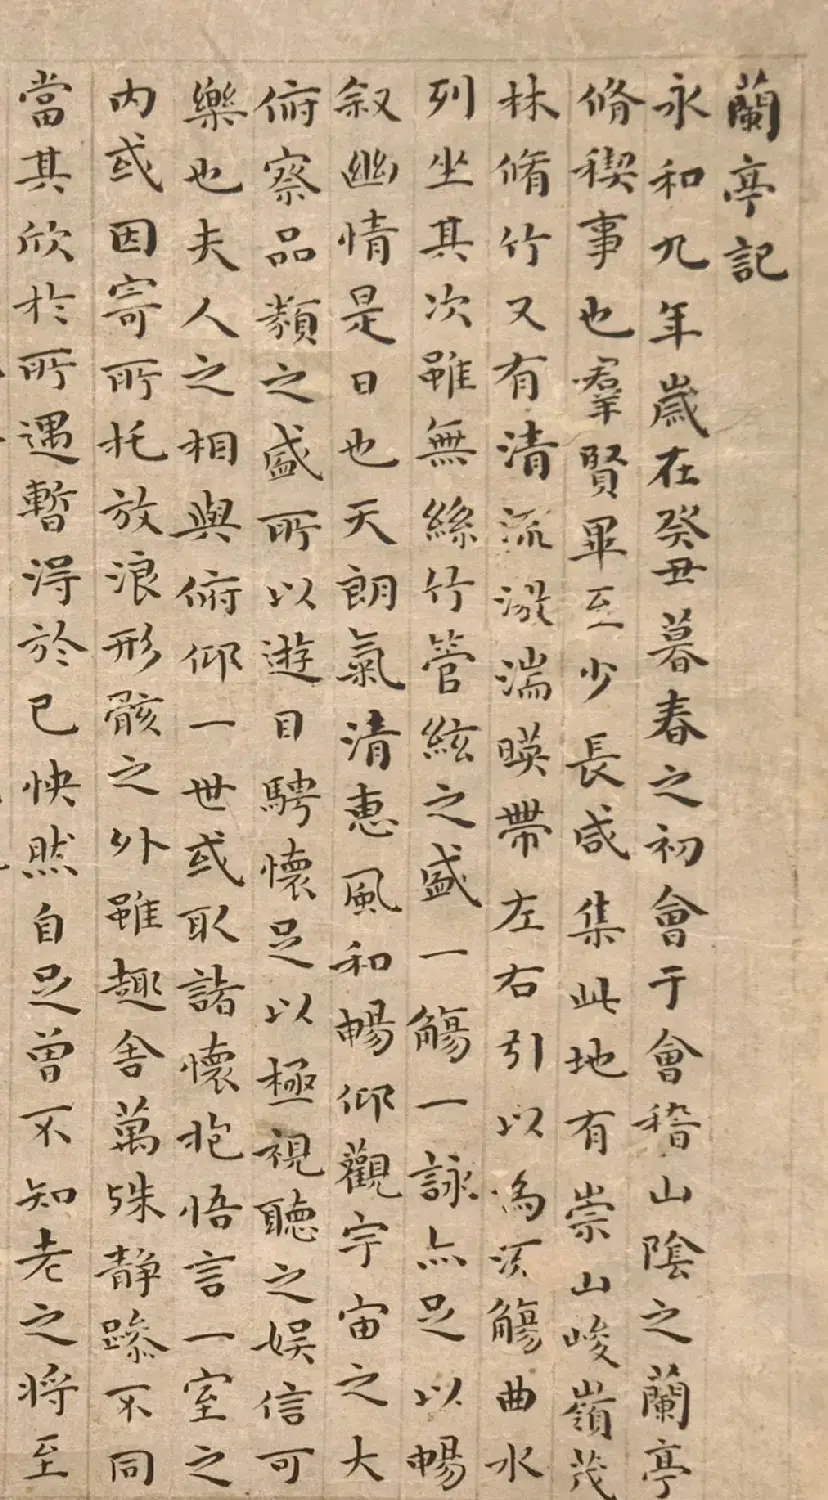 蘭亭記
永和九年歲在癸丑暮春之初會于會稽山陰之蘭亭
脩稧事也羣賢畢至少長咸集此地有崇山峻嶺茂
林脩竹又有清流激湍暎帶左右引以為流觴曲水
列坐其次雖無絲竹管絃之盛一觴一詠亦足以暢
叙幽情是日也天朗氣清惠風和暢仰觀宇宙之大
俯察品類之盛所以遊目騁懷足以極視聽之娛信可
樂也夫人之相與俯仰一世或取諸懷抱悟言一室之
內或因寄所托放浪形骸之外雖趣舍萬殊静躁不同
當其欣於所遇暫得於己怏然自足曾不知老之將至